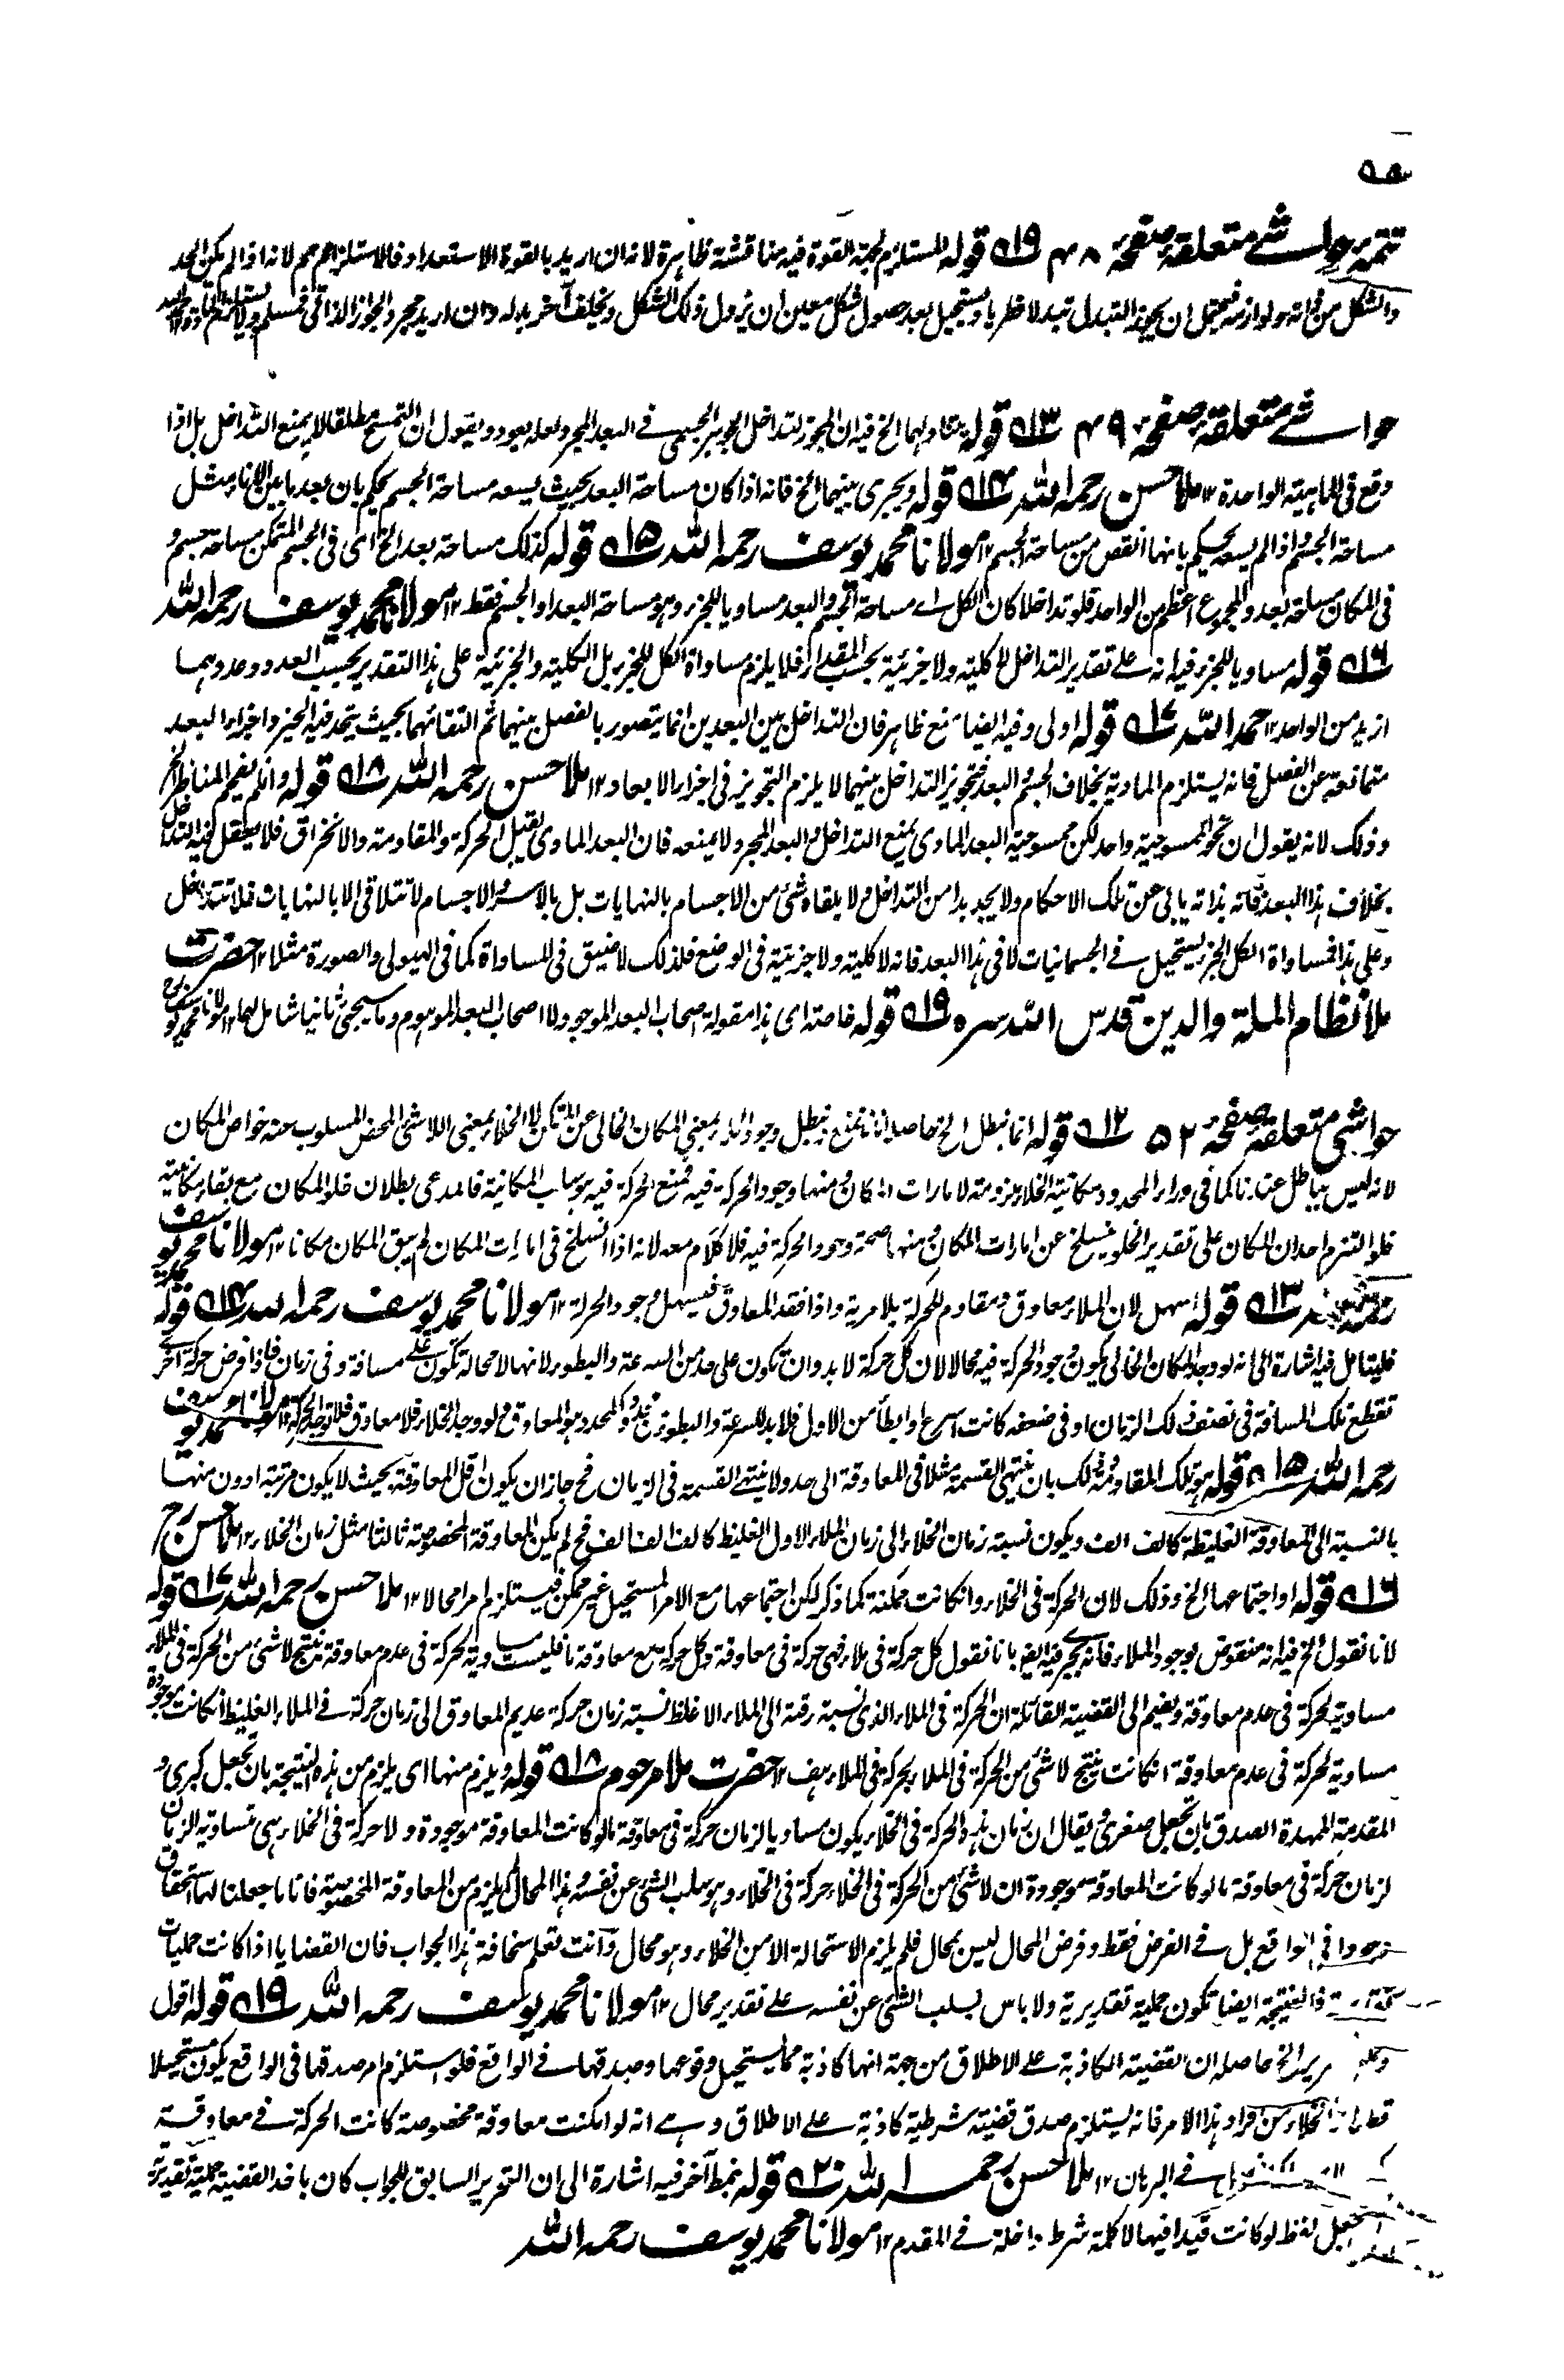 تتمہ حواشے متعلقہ صفحہ ۴۸ ۱۹ قولہ المستلزم لجہة القوة فیہ مناقشة ظاہرة لانہ ان ارید بالقوة الاستعداد فالاستلزام مم لانہ اذا لم یکن الحد
والشکل من ذاتہ ولوازمہ فیحتمل ان یجوز التبدل تبدلا فطریا ویستحیل بعد حصول شکل معین ان یزول ذلک الشکل ویخلف آخر بدلہ وان ارید مجرد الجواز الذاتی فمسلم ولا یستلزم المادة
حواشے متعلقہ صفحہ ۴۹ ۱۳ قولہ الخ فیہ ان المجوز لتداخل الجوہر الجسمی فے البعد المجرد لعلہ یعود ویقول ان مطلقا لا یمنع التداخل بل اذا
وقع فی الماہیة الواحدة ۱۲ ملا حسن رحمہ اللہ ۱۴ قولہ ویجری بینہما الخ فانہ اذا کان مساحة البعد بحیث یسعہ مساحة الجسم یحکم بان بعد ما بین الاناء مثل
مساحة الجسم واذا لم یسعہ یحکم بانہا انقص من مساحة الجسم ۱۲ مولانا محمد یوسف رحمہ اللہ ۱۵ قولہ کذلک مساحة بعد الخ ای فی الجسم المتمکن مساحة جسم و
فی المکان مساحة بعد والمجموع اعظم من الواحد فلو تداخلا کان الکل اے مساحة الجسم والبعد مساویا للجزء وہو مساحة البعد او الجسم فقط ۱۲ مولانا محمد یوسف رحمہ اللہ
۱۶ قولہ مساویا للجزء فیہ انہ علے تقدیر التداخل لا کلیة ولا جزئیة بحسب المقدار فلا یلزم مساواة الکل للجزء بل الکلیة والجزئیة علی ہذا التقدیر بحسب العدد وعددہما
ازید من الواحد ۱۲ حمد اللہ ۱۷ قولہ اولی وفیہ ایضا منع ظاہر فان التداخل بین البعدین انما یتصور بالفصل بینہما ثم التقائہما بحیث یتحد فیہ الحیز واجزاء البعد
متمانعة عن الفصل فانہ یستلزم المادیة بخلاف الجسم والبعد فتجویز التداخل بینہما لا یلزم التجویز فی اجزاء الابعاد ۱۲ ملا حسن رحمہ اللہ ۱۸ قولہ وان لم یفحم المناظر الخ
وذلک لانہ یقول ان نحو الممسوحیة واحد لکن ممسوحیة البعد المادی یمنع التداخل والبعد المجرد لا یمنعہ فان البعد المادی یقبل الحرکة والمقاومة والانخراق فلا یعقل فیہ التداخل
بخلاف ہذا البعد فانہ بذاتہ یابی عن تلک الاحکام ولا یجد بدا من التداخل ولا یلقاہ شئ من الاجسام بالنہایات بل بالاسر والاجسام لا تتلاقی الا بالنہایات فلا تتداخل
وعلی ہذا فمساواة الکل الجزء یستحیل فے الجسمانیات لا فی ہذا البعد فانہ لا کلیة ولا جزئیة فی الوضع فلذلک لا ضیق فی المساواة کما فی الہیولی والصورة مثلا ۱۲ حضرت
ملا نظام الملة والدین قدس اللہ سرہ ۱۹ قولہ خاصة ای ہذا مقولة اصحاب البعد الموجود لا اصحاب البعد الموہوم وما سیجئ ثانیا شامل لہما ۱۲ مولانا محمد یوسف رح
حواشی متعلقہ صفحہ ۵۲ ۱۲ قولہ انما نبطل الخ حاصلہ انا نمنع ونبطل وجود الخلاء بمعنی المکان الخالی عن المتمکن لا الخلاء بمعنی اللاشئ المحض المسلوب عنہ خواص المکان
لانہ لیس بباطل عندنا کما فی وراء المحدد ومکانیة الخلاء ملزومة لامارات المکان ومنہا وجود الحرکة فیہ فمنع الحرکة فیہ یوجب سلب المکانیة فالمدعی بطلان خلو المکان مع بقاء مکانیتہ
فلو التزم احد ان المکان علی تقدیر الخلو ینسلخ عن امارات المکان ومنہا صحة وجود الحرکة فیہ فلا کلام معہ لانہ اذا انسلخ فی امارات المکان لم یبق المکان مکانا ۱۲ مولانا محمد یوسف
۱۳ قولہ اسہل لان الملاء معاوق ومقاوم للحرکة بلا مریة واذا فقد المعاوق فیسہل وجود الحرکة ۱۲ مولانا محمد یوسف رحمہ اللہ ۱۴ قولہ
فلیتامل فیہ اشارة الی انہ لو وجد المکان الخالی یکون وجود الحرکة فیہ محالا لان کل حرکة لا بد وان تکون علی حد من السرعة والبطوء لانہا لا محالة تکون علے مسافة وفی زمان فاذا فرض حرکة اخرے
تقطع تلک المسافة فی نصف ذلک الزمان او فی ضعفہ کانت اسرع او ابطأ من الاول فلا بد للسرعة والبطوء من محدد والمحدد ہو المعاوق فلو وجد الخلاء فلا معاوق فلا توجد الحرکة ۱۲ مولانا محمد یوسف
رحمہ اللہ ۱۵ قولہ تلک المقاومة الخ ذلک بان ینتہی القسمة مثلا فی المعاوقة الی حد ولا ینتہے القسمة فی الزمان فح جاز ان یکون اقل المعاوقة بحیث لا یکون مرتبة ادون منہا
بالنسبة الی المعاوقة الغلیظة کالف الف ویکون نسبة زمان الخلاء الی زمان الملاء الاول الغلیظ کالف الف الف فح لم یکن المعاوقة المخصوصة ثالثا مثل زمان الخلاء ۱۲ ملا حسن رح
۱۶ قولہ او اجتماعہا الخ وذلک لان الحرکة فی الخلاء وان کانت ممکنة کما ذکر لکن اجتماعہا مع الامر المستحیل غیر ممکن فیستلزم امرا محالا ۱۲ ملا حسن رحمہ اللہ ۱۷ قولہ
لانا نقول الخ فیہ انہ منقوض بوجود الملاء فانہ یجرے فیہ ایضا بانا نقول کل حرکة فی ملاء فہی حرکة فی معاوقة وکل حرکة مع معاوقة ما فلیست مساویة لحرکة فی عدم معاوقة ینتج لا شئ من الحرکة فی الملاء
مساویة لحرکة فی عدم معاوقة ویضم الی القضیة القائلة ان الحرکة فی الملاء الذی نسبة رقتہ الی الملاء الاغلظ نسبة زمان حرکة عدیم المعاوق الی زمان حرکة فے الملاء الغلیظ ان کانت موجودة
مساویة لحرکة فی عدم معاوقة ان کانت ینتج لا شئ من الحرکة فی الملاء بحرکة فی الملاء ہف ۱۲ حضرت ملا مرحوم ۱۸ قولہ ویلزم منہا ای یلزم من ہذہ النتیجة بان تجعل کبری و
المقدمة الممہدة الصدق بان تجعل صغری ویقال ان زمان ہذہ الحرکة فی الخلاء یکون مساویا لزمان حرکة فی معاوقة ما لو کانت المعاوقة موجودة ولا حرکة فی الخلاء ہی مساویة الزمان
لزمان حرکة فی معاوقة ما لو کانت المعاوقة موجودة ان لا شئ من الحرکة فی الخلاء حرکة فی الخلاء وہو سلب الشئ عن نفسہ وہذا المحال لم یلزم من المعاوقة المخصوصة فانا ما جعلنا لہا تحققا
ووجودا فی الواقع بل فے الفرض فقط وفرض المحال لیس بمحال فلم یلزم الاستحالة الا من الخلاء وہو محال وانت تعلم سخافة ہذا الجواب فان القضایا اذا کانت حملیات
فالنتیجة ایضا تکون حملیة تقدیریة ولا باس لسلب الشئ عن نفسہ علے تقدیر محال ۱۲ مولانا محمد یوسف رحمہ اللہ ۱۹ قولہ اقول
یرید الخ حاصلہ ان القضیة الکاذبة علے الاطلاق من جہة انہا کاذبة مما یستحیل وقوعہا وصدقہا فے الواقع فلو استلزم امر صدقہا فی الواقع یکون مستحیلا
قطعا الخلاء من افراد ہذا الامر فانہ یستلزم صدق قضیة شرطیة کاذبة علے الاطلاق وہے انہ لو امکنت معاوقة مخصوصة کانت الحرکة فے معاوقة
فے البرہان ۱۲ ملا حسن رحمہ اللہ ۲۰ قولہ بنمط آخر فیہ اشارة الی ان التقریر السابق للجواب کان باخذ القضیة حملیة تقدیریة
جعل لفظ لو کانت قیدا فیہا لا کلمة شرط داخلة فے المقدم ۱۲ مولانا محمد یوسف رحمہ اللہ